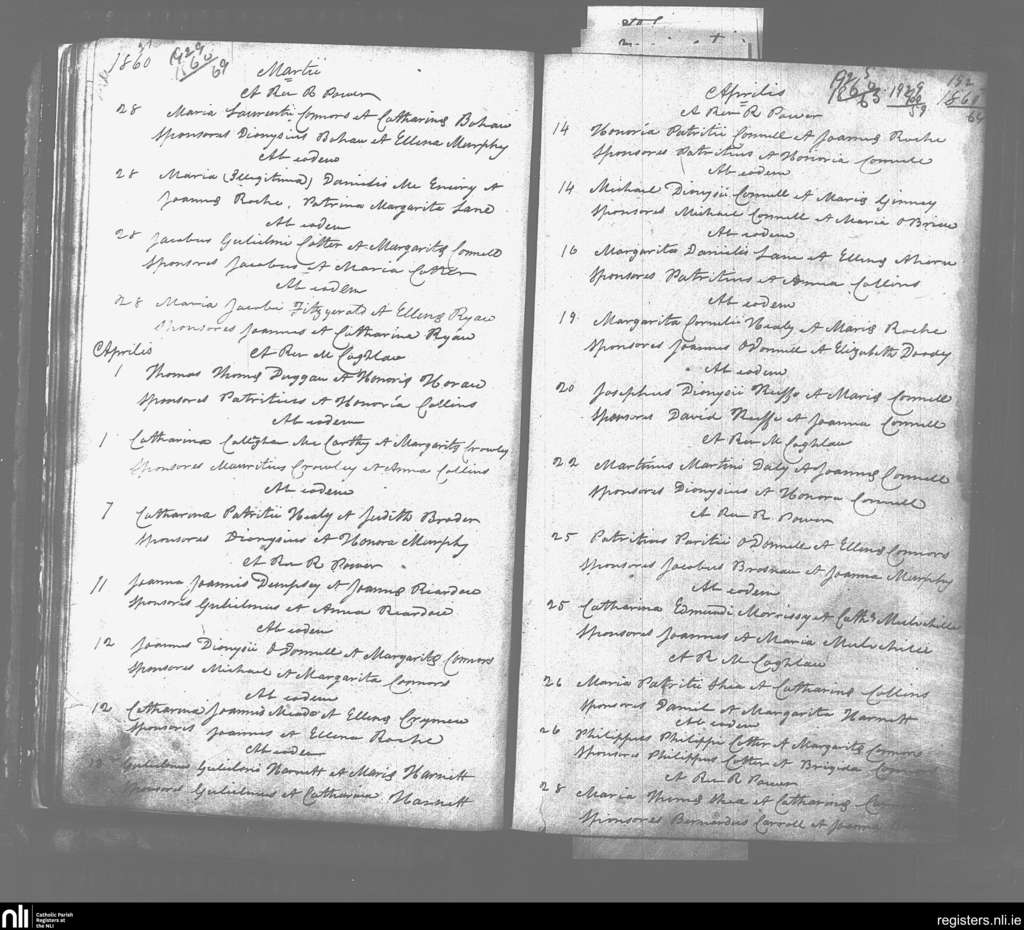 1860
Martii
A Rev R Power
28 Maria Laurentii Connors et Catharinę Bohan
Sponsores Dionysius Bohan et Ellena Murphy
Ab eodem
28 Maria (Illegitima) Danielis Mc Eniry et
Joannę Roche, Patrina Margarita Lane
Ab eodem
28 Jacobus Gulielmi Cotter et Margaritę Connell
Sponsores Jacobus et Maria Cotter
Ab eodem
28 Maria Jacobi Fitzgerald et Ellenę Ryan
Sponsores Joannes et Catharina Ryan
Aprilis A Rev M Coghlan
1 Thomas Thomę Duggan et Honorię Horan
Sponsores Patritius et Honoria Collins
Ab eodem
1 Catharina Calleghan Mc Carthy et Margaritę Crowley
Sponsores Mauritius Crowley et Anna Collins
Ab eodem
7 Catharina Patritii Healy et Judith Broder
Sponsores Dionysius et Honora Murphy
A Rev R Power
11 Joanna Joannis Dempsey et Joannę Reardon
Sponsores Gulielmus et Anna Reardon
Ab eodem
12 Joannes Dionysii O'Donnell et Margaritę Connors
Sponsores Michael et Margarita Connors
Ab eodem
12 Catharina Joannis Meade et Ellenę
Sponsores Joannes et Ellena Roche
Ab eodem
Gulielmus Gulielmi Harnett et Marię Harnett
Sponsores Gulielmus et Catharina Harnett
1860
Aprilis
A Rev R Power
14 Honoria Patritii Connell et Joannę Roche
Sponsores Patritius et Honoria Connell
Ab eodem
14 Michael Dionysii Connell et Marię
Sponsores Michael Connell et Maria O'Brien
Ab eodem
16 Margarita Danielis Lane et Ellenę Ahern
Sponsores Patritius et Anna Collins
Ab eodem
19 Margarita Cornelii Healy et Marię Roche
Sponsores Joannes O'Donnell et Elizabeth Doody
Ab eodem
20 Josephus Dionysii Keiffe et Marię Connell
Sponsores David Keiffe et Joanna Connell
A Rev M Coghlan
22 Martinus Martini Daly et Joannę Connell
Sponsores Dionysius et Honora Connell
A Rev R Power
25 Patritius Patritii O'Donnell et Ellenę Connors
Sponsores Jacobus Brosnan et Joanna Murphy
Ab eodem
25 Catharina Edmundi Morrissy et Cathę Mulvehille
Sponsores Joannes et Maria Mulvehille
A R M Coghlan
26 Maria Patritii Shea et Catharinę Collins
Sponsores Daniel et Margarita Harnett
Ab eodem
26 Philippus Philippi Cotter et Margaritę Connors
Sponsores Philippus Cotter et Brigida
A Rev R Power
28 Maria Thomę Shea et Catharinę
Sponsores Bernardus Carroll et Joanna
nli Catholic Parish
Registers at
the NLI
registers.nli.ie